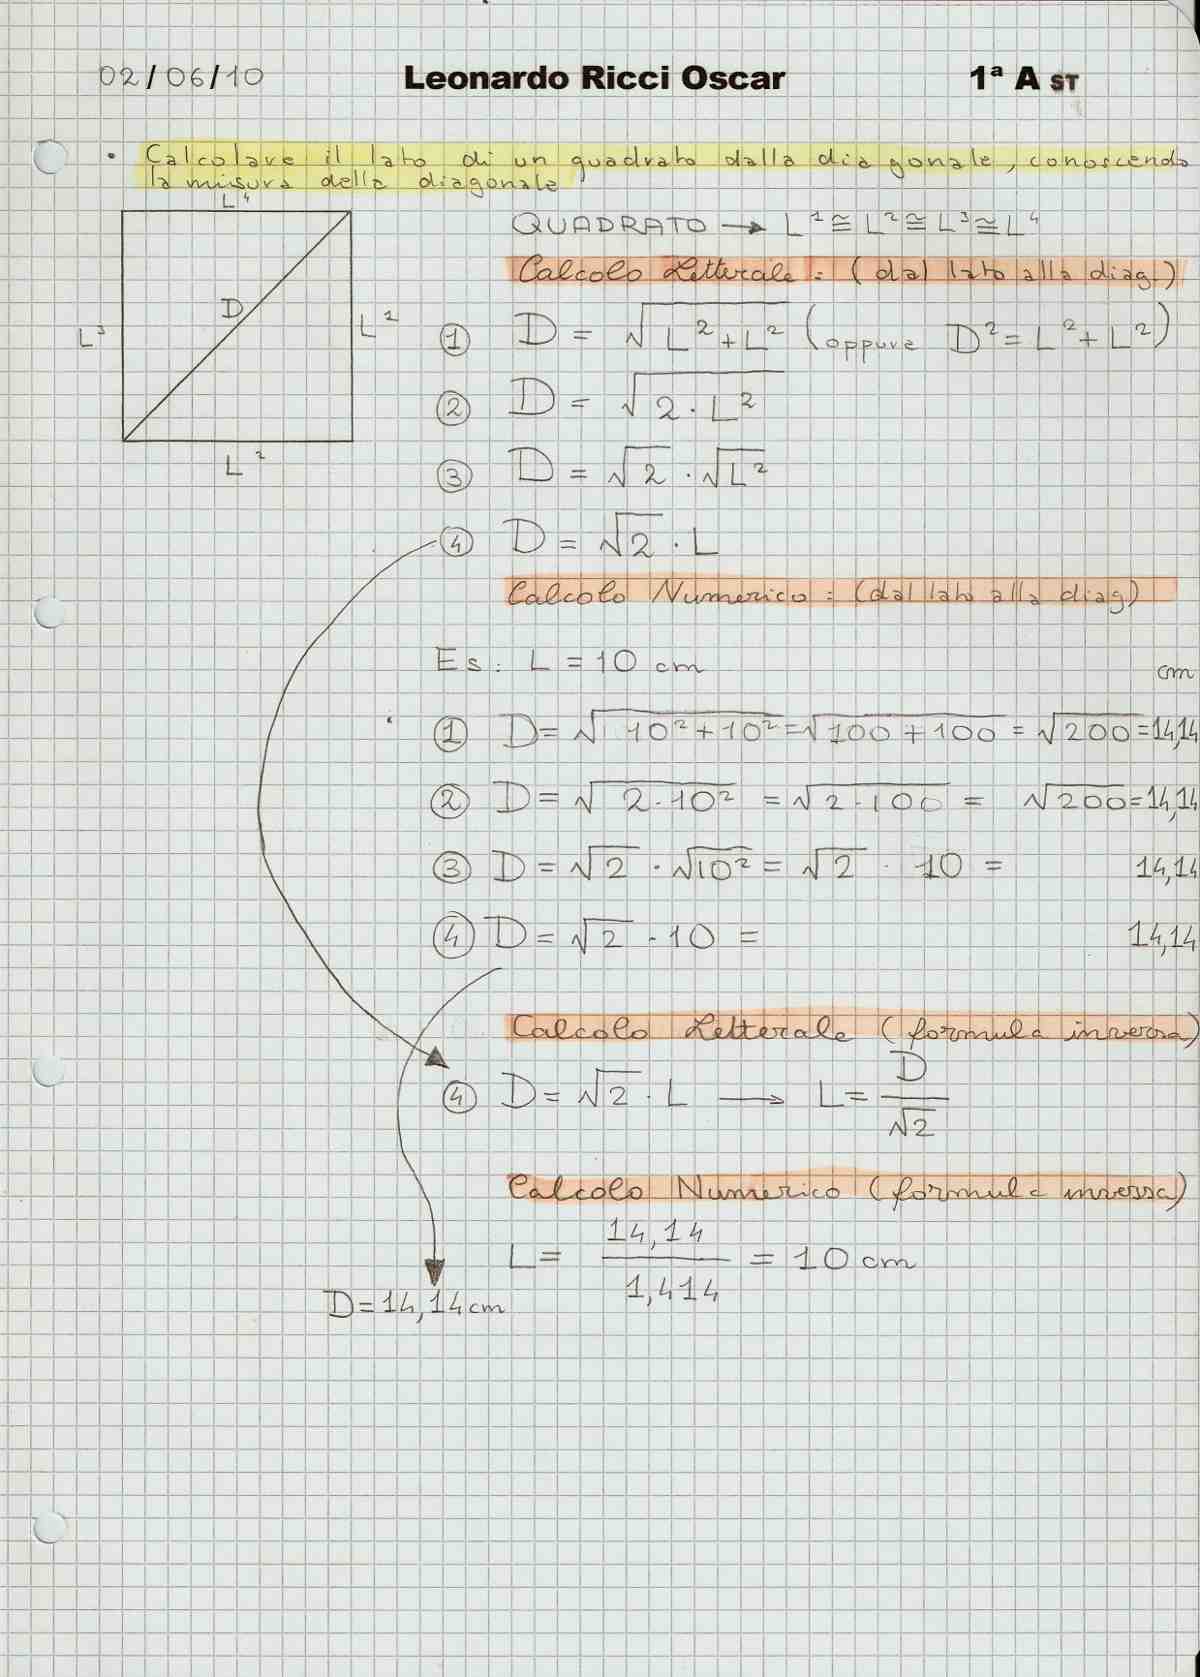 02/06/10 Leonardo Ricci Oscar 1ª A ST
• Calcolare il lato di un quadrato dalla diagonale, conoscendo
la misura della diagonale
L⁴
QUADRATO → L¹≅L²≅L³≅L⁴
Calcolo Letterale: (dal lato alla diag.)
D
L³
L²
① D = √(L²+L²) (oppure D²=L²+L²)
② D = √(2·L²)
L²
③ D = √2 · √L²
④ D = √2 · L
Calcolo Numerico: (dal lato alla diag)
Es: L = 10 cm
cm
① D = √(10²+10²) = √(100+100) = √200 = 14,14
② D = √(2·10²) = √(2·100) = √200 = 14,14
③ D = √2 · √10² = √2 · 10 = 14,14
④ D = √2 · 10 = 14,14
Calcolo Letterale (formula inversa)
④ D = √2 · L → L = D/√2
Calcolo Numerico (formula inversa)
L = 14,14/1,414 = 10 cm
D = 14,14 cm